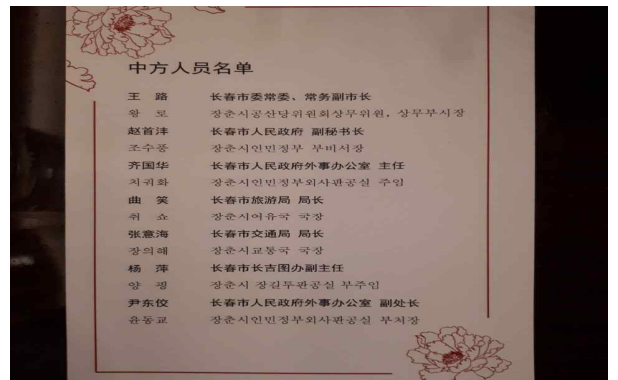 中方人员名单
王 路 长春市委常委、常务副市长
왕 로 장춘시공산당위원회상무위원, 상무부시장
赵首沣 长春市人民政府 副秘书长
조수풍 장춘시인민정부 부비서장
齐国华 长春市人民政府外事办公室 主任
치귀화 장춘시인민정부외사판공실 주임
曲 笑 长春市旅游局 局长
취 쇼 장춘시여유국 국장
张意海 长春市交通局 局长
장의해 장춘시교통국 국장
杨 萍 长春市长吉图办副主任
양 평 장춘시 장길두판공실 부주임
尹东佼 长春市人民政府外事办公室 副处长
윤동교 장춘시인민정부외사판공실 부처장